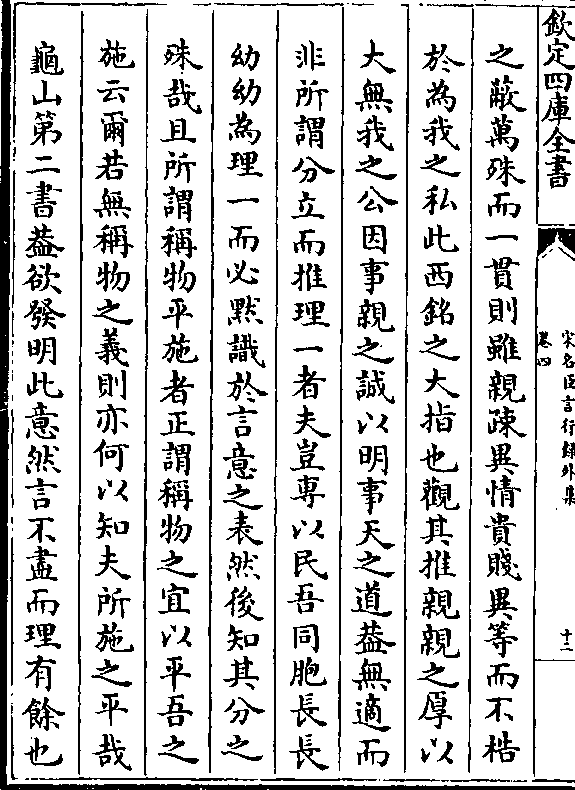 欽定四庫全書
宋名臣言行録外集
卷四
十二
之蔽萬殊而一貫則雖親疎異情貴賤異等而不梏
於為我之私此西銘之大指也觀其推親親之厚以
大無我之公因事親之誠以明事天之道葢無適而
非所謂分立而推理一者夫豈專以民吾同胞長長
幼幼為理一而必黙識於言意之表然後知其分之
殊哉且所謂稱物平施者正謂稱物之宜以平吾之
施云爾若無稱物之義則亦何以知夫所施之平哉
龜山第二書葢欲發明此意然言不盡而理有餘也